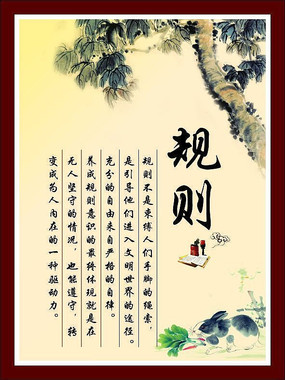 规则
规则不是束缚人们手脚的绳索，
是引导他们进入文明世界的途径。
充分的自由来自严格的自律，
养成规则意识的最终体现就是在
无人坚守的情况，也能遵守，转
变成为人内在的一种驱动力。